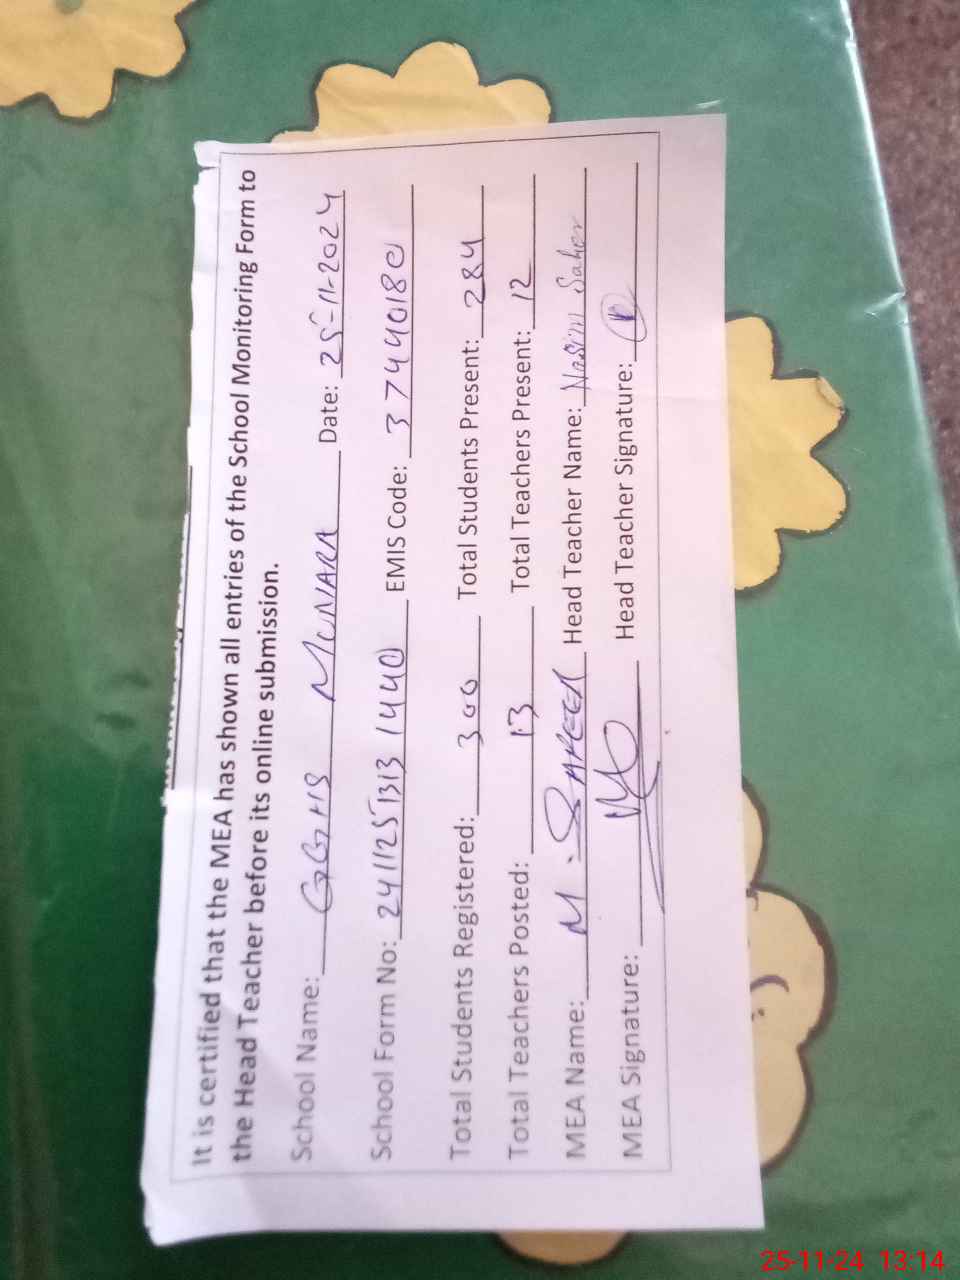 It is certified that the MEA has shown all entries of the School Monitoring Form to
the Head Teacher before its online submission.
School Name: GGHS MUNARA Date: 25-11-2024
School Form No: 2411251313 1440 EMIS Code: 37440180
Total Students Registered: 300 Total Students Present: 284
Total Teachers Posted: 13 Total Teachers Present: 12
MEA Name: M. SAFEER Head Teacher Name: Nasim Saher
MEA Signature: Head Teacher Signature:
25-11-24 13:14